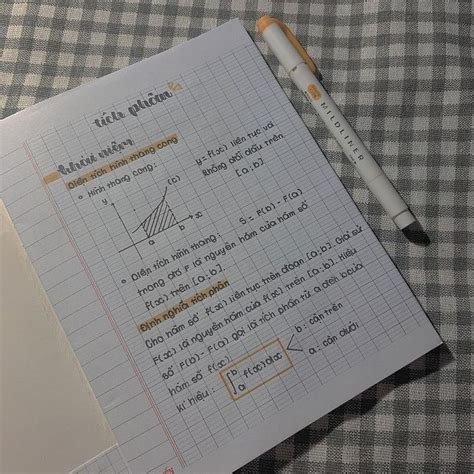 tích phân
khái niệm
Diện tích hình thang cong
• Hình thang cong: y = f(x) liên tục và
không đổi dấu trên
[a; b].
y
(C)
a b x
• Diện tích hình thang: S = F(b) - F(a)
trong đó F là nguyên hàm của hàm số
f(x) trên [a; b].
Định nghĩa tích phân
Cho hàm số f(x) liên tục trên đoạn [a; b]. Giả sử
F(x) là nguyên hàm của f(x) trên [a; b]. Hiệu
số F(b) - F(a) gọi là tích phân từ a đến b của
hàm số f(x).
kí hiệu: ∫ₐᵇ f(x)dx
b: cận trên
a: cận dưới
MILDLINER